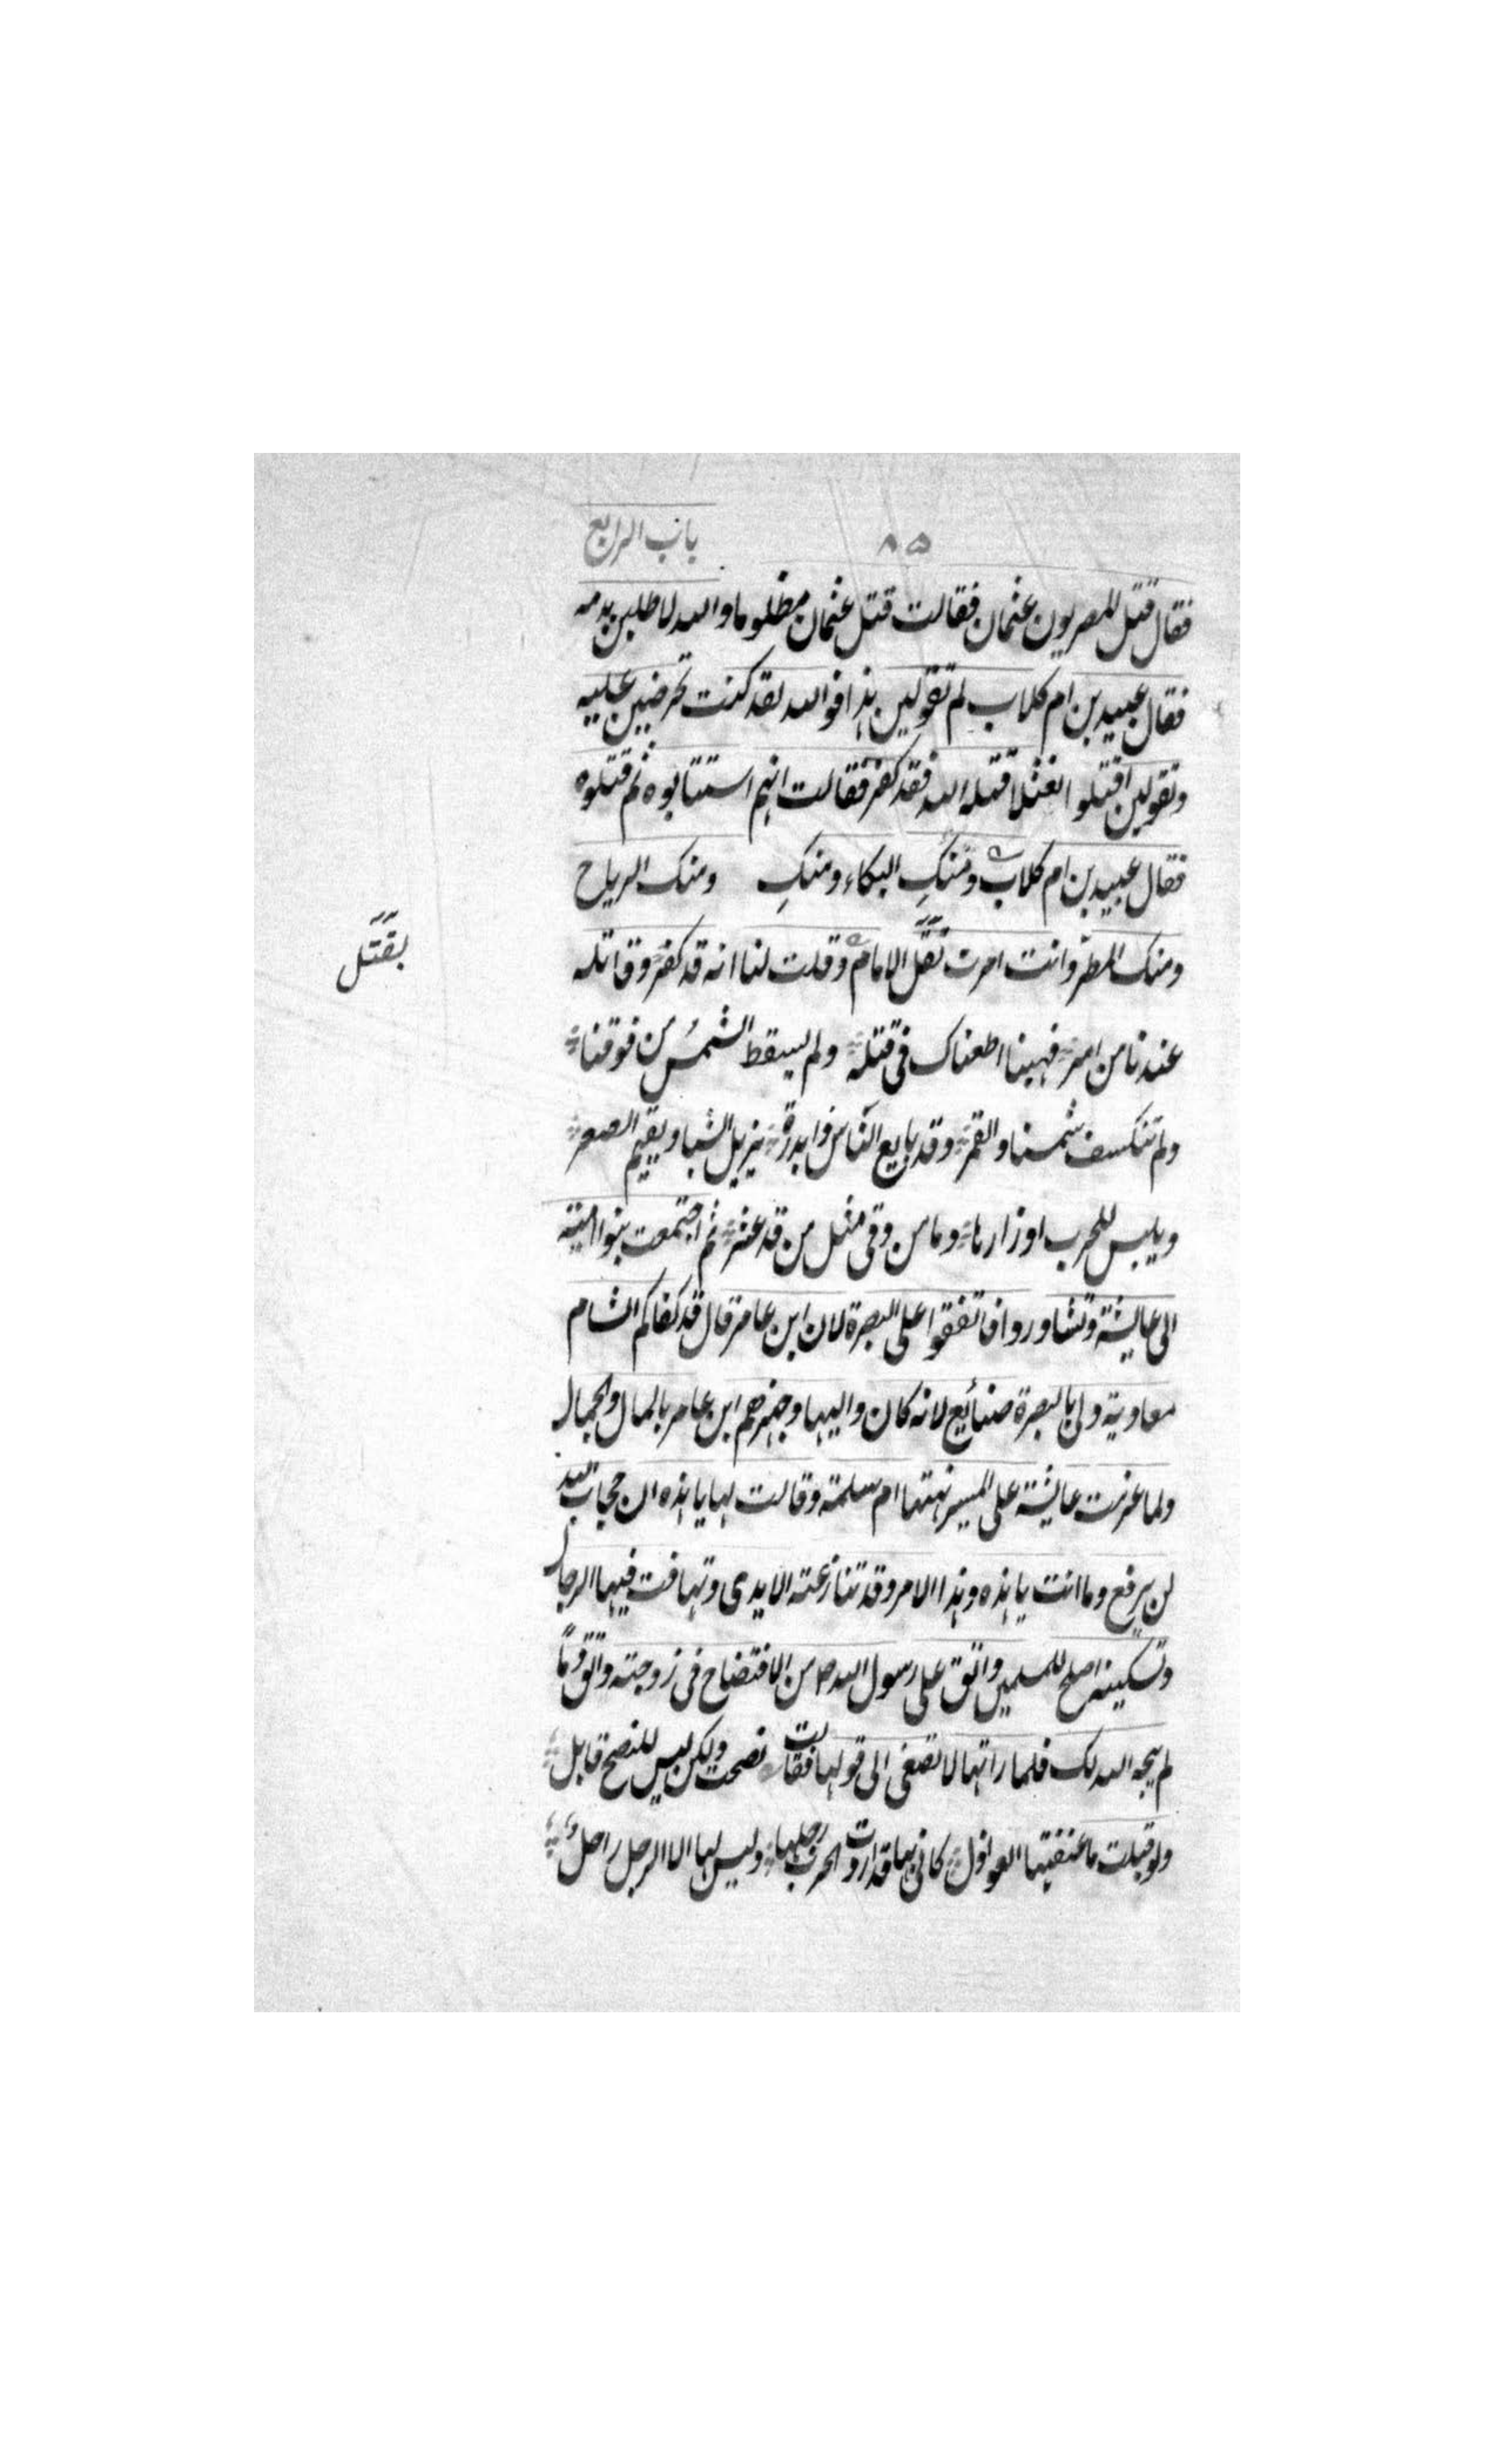 ٨٥ باب الرابع
فقال قتل المصريون عثمان فقالت قتل عثمان مظلوما والله لاطلبن بدمه
فقال عبيد بن ام كلاب لم تقولين هذا فوالله لقد كنت تحرضين عليه
وتقولين اقتلوا نعثلا قتله الله فقد كفر فقالت انهم استتابوه ثم قتلوه
فقال عبيد بن ام كلاب ومنكِ البكاء ومنكِ ومنك الرياح
ومنك المطر وانت امرت بقتل الامام وقلت لنا انه قد كفر وقاتله
بقتل
عندنا من امر فهبنا اطعناك فى قتله ولم يسقط الشمس من فوقنا
ولم تنكسف شمسنا والقمر وقد بايع الناس ذا بدرة يزيل الشبا ويقيم الصعر
ويلبس للحرب اوزارها وما من وفى مثل من قد عثر ثم اجتمعت بنوا امية
الى عايشة وتشاوروا فاتفقوا على البصرة لان ابن عامر قال قد كفاكم الشام
معاوية ولى بالبصرة صنائع لانه كان واليها وجهزهم ابن عامر بالمال والجمال
ولما عزمت عايشة على المسير نهتها ام سلمة وقالت لها يا هذه ان حجاب الله
لن يرفع وما انت يا هذه وهذا الامر وقد تنازعته الايدى وتهافت فيها الرجال
وتسكينه اصلح للمسلمين واتق على رسول الله ص من الافتضاح فى زوجته واتق دمًا
لم يبحه الله لك فلما راتها لا تصغى الى قولها فقالت نصحت ولكن ليس للنصح قابل
ولو قبلت ما عنفتها العواذل كانى بها قد اردت الحرب رحلها وليس لها الا الرجل راحل